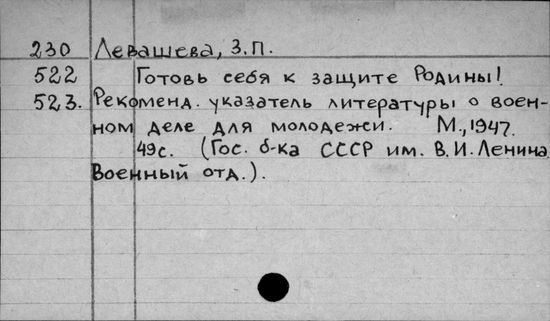 230 Левашева, З.П.
522 Готовь себя к защите Родины!
523. Рекоменд. указатель литературы о воен-
ном деле для молодежи. М., 1947.
49с. (Гос. б-ка СССР им. В.И. Ленина
Военный отд.).